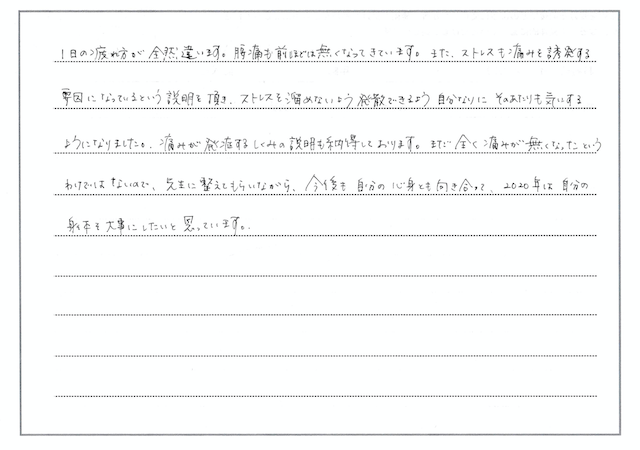 1日の疲れ方が全然違います。腰痛も前ほどは無くなってきています。また、ストレスも痛みを誘発する
要因になっているという説明を頂き、ストレスを溜めないよう発散できるよう自分なりにそのあたりも気にする
ようになりました。痛みが発症するしくみの説明も納得しております。まだ全く痛みが無くなったという
わけではないので、先生に整えてもらいながら、今後も自分の心身とも向き合って、2020年は自分の
身体を大事にしたいと思っています。